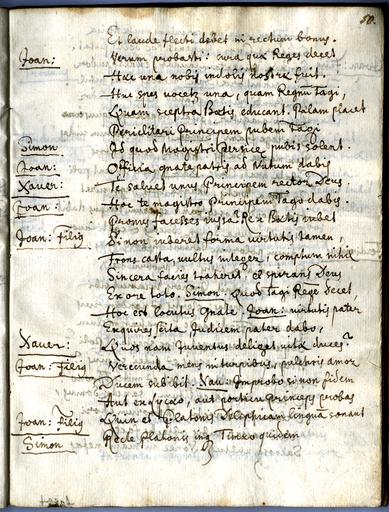 50.
Et laude flecti debet in rectum bonus.
Joan: Verum probasti: cura qua Reges decet
Hac una nobis indolis nostræ fuit.
Hac spes vocet una, quam Regni tagi,
Quam sceptra Bœtis educant. Palam placet
Periclitari Principem pubem Tagi
Simon Ad quod Magistri Persice pueris solent.
Joan: Officia gnate patris ad Nutum dabis
Xauer: Te salvet unus Principem rector Deus.
Joan: Hoc te magistro Principem Tago dabo.
Promus facesses jussa Rex Bœtis iubet
Joan: Filig Si non iuberet forma virtutis tamen,
Frons casta, vultus integer, comptum nihil
Sincera facies traheret, et spirans Deus
Ex ore toto. Simon: Quod tagi Rege decet,
Hoc est locutus Gnate. Joan: virtutis pater
Exquires ista Judicem pater dabo,
Xauer: Quos nam Juventus deliget vitæ duces?
Joan: Filig Verecunda mens in turpibus, pulchris amor
Ducem sibi bit. Xau: Improbo si non fidem
Aut ex equo, aut portior Princeps probas
Joan: Filig Quin et Platonis Delphicam lingua sonant
Simon Recte Platonis in Timæo quidem